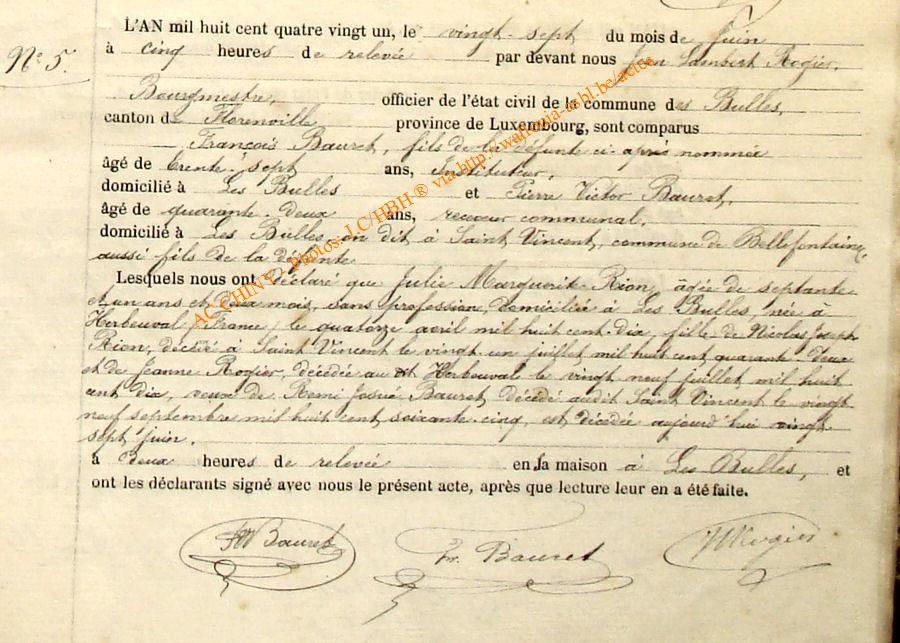 L'AN mil huit cent quatre vingt un, le vingt-sept du mois de Juin
N° 5.
à cinq heures de relevée par devant nous Jean Lambert Rogier,
Bourgmestre, officier de l'état civil de la commune des Bulles,
canton de Florenville province de Luxembourg, sont comparus
François Bauret, fils de la défunte ci-après nommée
âgé de trente-sept ans, Instituteur,
domicilié à Les Bulles et Pierre Victor Bauret,
âgé de quarante-deux ans, receveur communal,
domicilié à Les Bulles, en dit à Saint Vincent, commune de Bellefontaine,
aussi fils de la défunte
Lesquels nous ont déclaré que Julie Marguerite Rion, agée de septante
et un ans et deux mois, sans profession, domiciliée à Les Bulles, née à
Herbeuval, France, le quatorze avril mil huit cent dix, fille de Nicolas Joseph
Rion, décédé à Saint Vincent le vingt un juillet mil huit cent quarante deux
et de Jeanne Rogier, décédée au dit Herbeuval le vingt neuf juillet mil huit
cent dix, veuve de Remi Josué Bauret, décédé audit Saint Vincent le vingt
neuf septembre mil huit cent soixante-cinq, est décédée aujourd'hui vingt
sept juin.
à deux heures de relevée en sa maison à Les Bulles, et
ont les déclarants signé avec nous le présent acte, après que lecture leur en a été faite.
Bauret Bauret Rogier
AC CHINY - Photos J.C/HBH ® via http://wallonia-asbl.be/actes